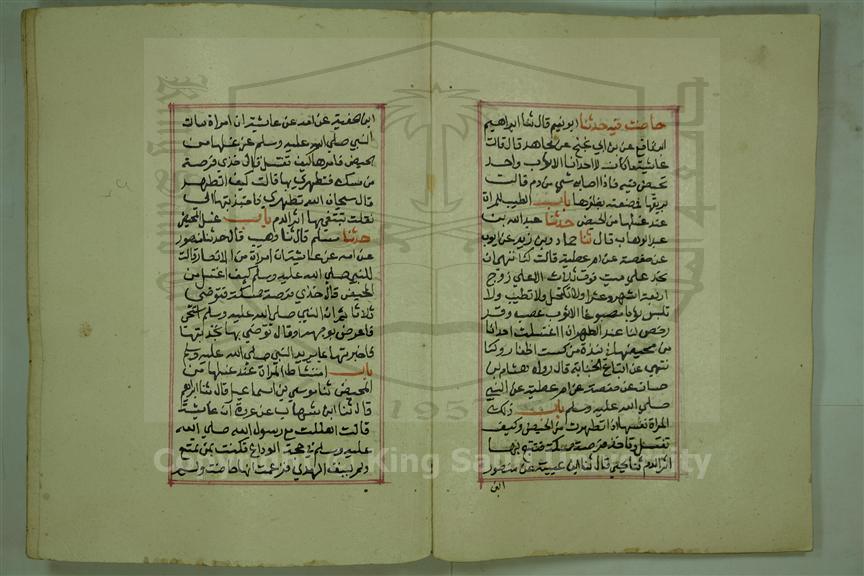 حاضت فيه حدثنا ابو نعيم قال ثنا ابراهيم
ابن نافع عن بن ابي نجيح عن مجاهد قال قالت
عايشة ما كان لاحدانا الا ثوب واحد
تحيض فيه فاذا اصابه شي من دم قالت
بريقها فصعته بظفرها باب الطيب للمراة
عند غسلها من الحيض حدثنا عبد الله بن
عبد الوهاب قال ثنا حماد بن زيد عن ايوب
عن حفصة عن ام عطية قالت كنا ننهى ان
نحد على ميت فوق ثلاث الا على زوج
اربعة اشهر وعشرا ولا نكتحل ولا نطيب ولا
نلبس ثوبا مصبوغا الا ثوب عصب وقد
رخص لنا عند الطهر اذا اغتسلت احدانا
من محيضها في نبذة من كست اظفار وكنا
ننهى عن اتباع الجنايز قال رواه هشام بن
حسان عن حفصة عن ام عطية عن النبي
صلي الله عليه وسلم باب دلك
المراة نفسها اذا تطهرت من الحيض وكيف
تغتسل وتاخذ فرصة ممسكة فتتبع بها
اثر الدم ثنا يحيى قال ثنا ابن عيينة عن منصور
ابن
ابن صفية عن امه عن عايشة ان امراة سالت
النبي صلى الله عليه وسلم عن غسلها من
الحيض فامرها كيف تغتسل قال خذي فرصة
من مسك فتطهري بها قالت كيف اتطهر
قال سبحان الله تطهري فاجتبذتها الى
فقلت تتبعي بها اثر الدم باب غسل المحيض
حدثنا مسلم قال ثنا وهيب قال حدثنا منصور
عن امه عن عايشة ان امراة من الانصار قالت
للنبي صلى الله عليه وسلم كيف اغتسل من
الحيض قال خذي فرصة ممسكة فتوضي
ثلاثا ثم ان النبي صلى الله عليه وسلم استحى
فاعرض بوجهه او قال توضي بها فجذبتها
فاخبرتها بما يريد النبي صلى الله عليه وسلم
باب امتشاط المراة عند غسلها من
المحيض ثنا موسى بن اسماعيل قال ثنا ابراهيم
قال ثنا ابن شهاب عن عروة ان عايشة
قالت اهللت مع رسول الله صلي الله
عليه وسلم في حجة الوداع فكنت ممن تمتع
ولم يسق الهدي فزعمت انها حاضت ولم
1957
King Saud University